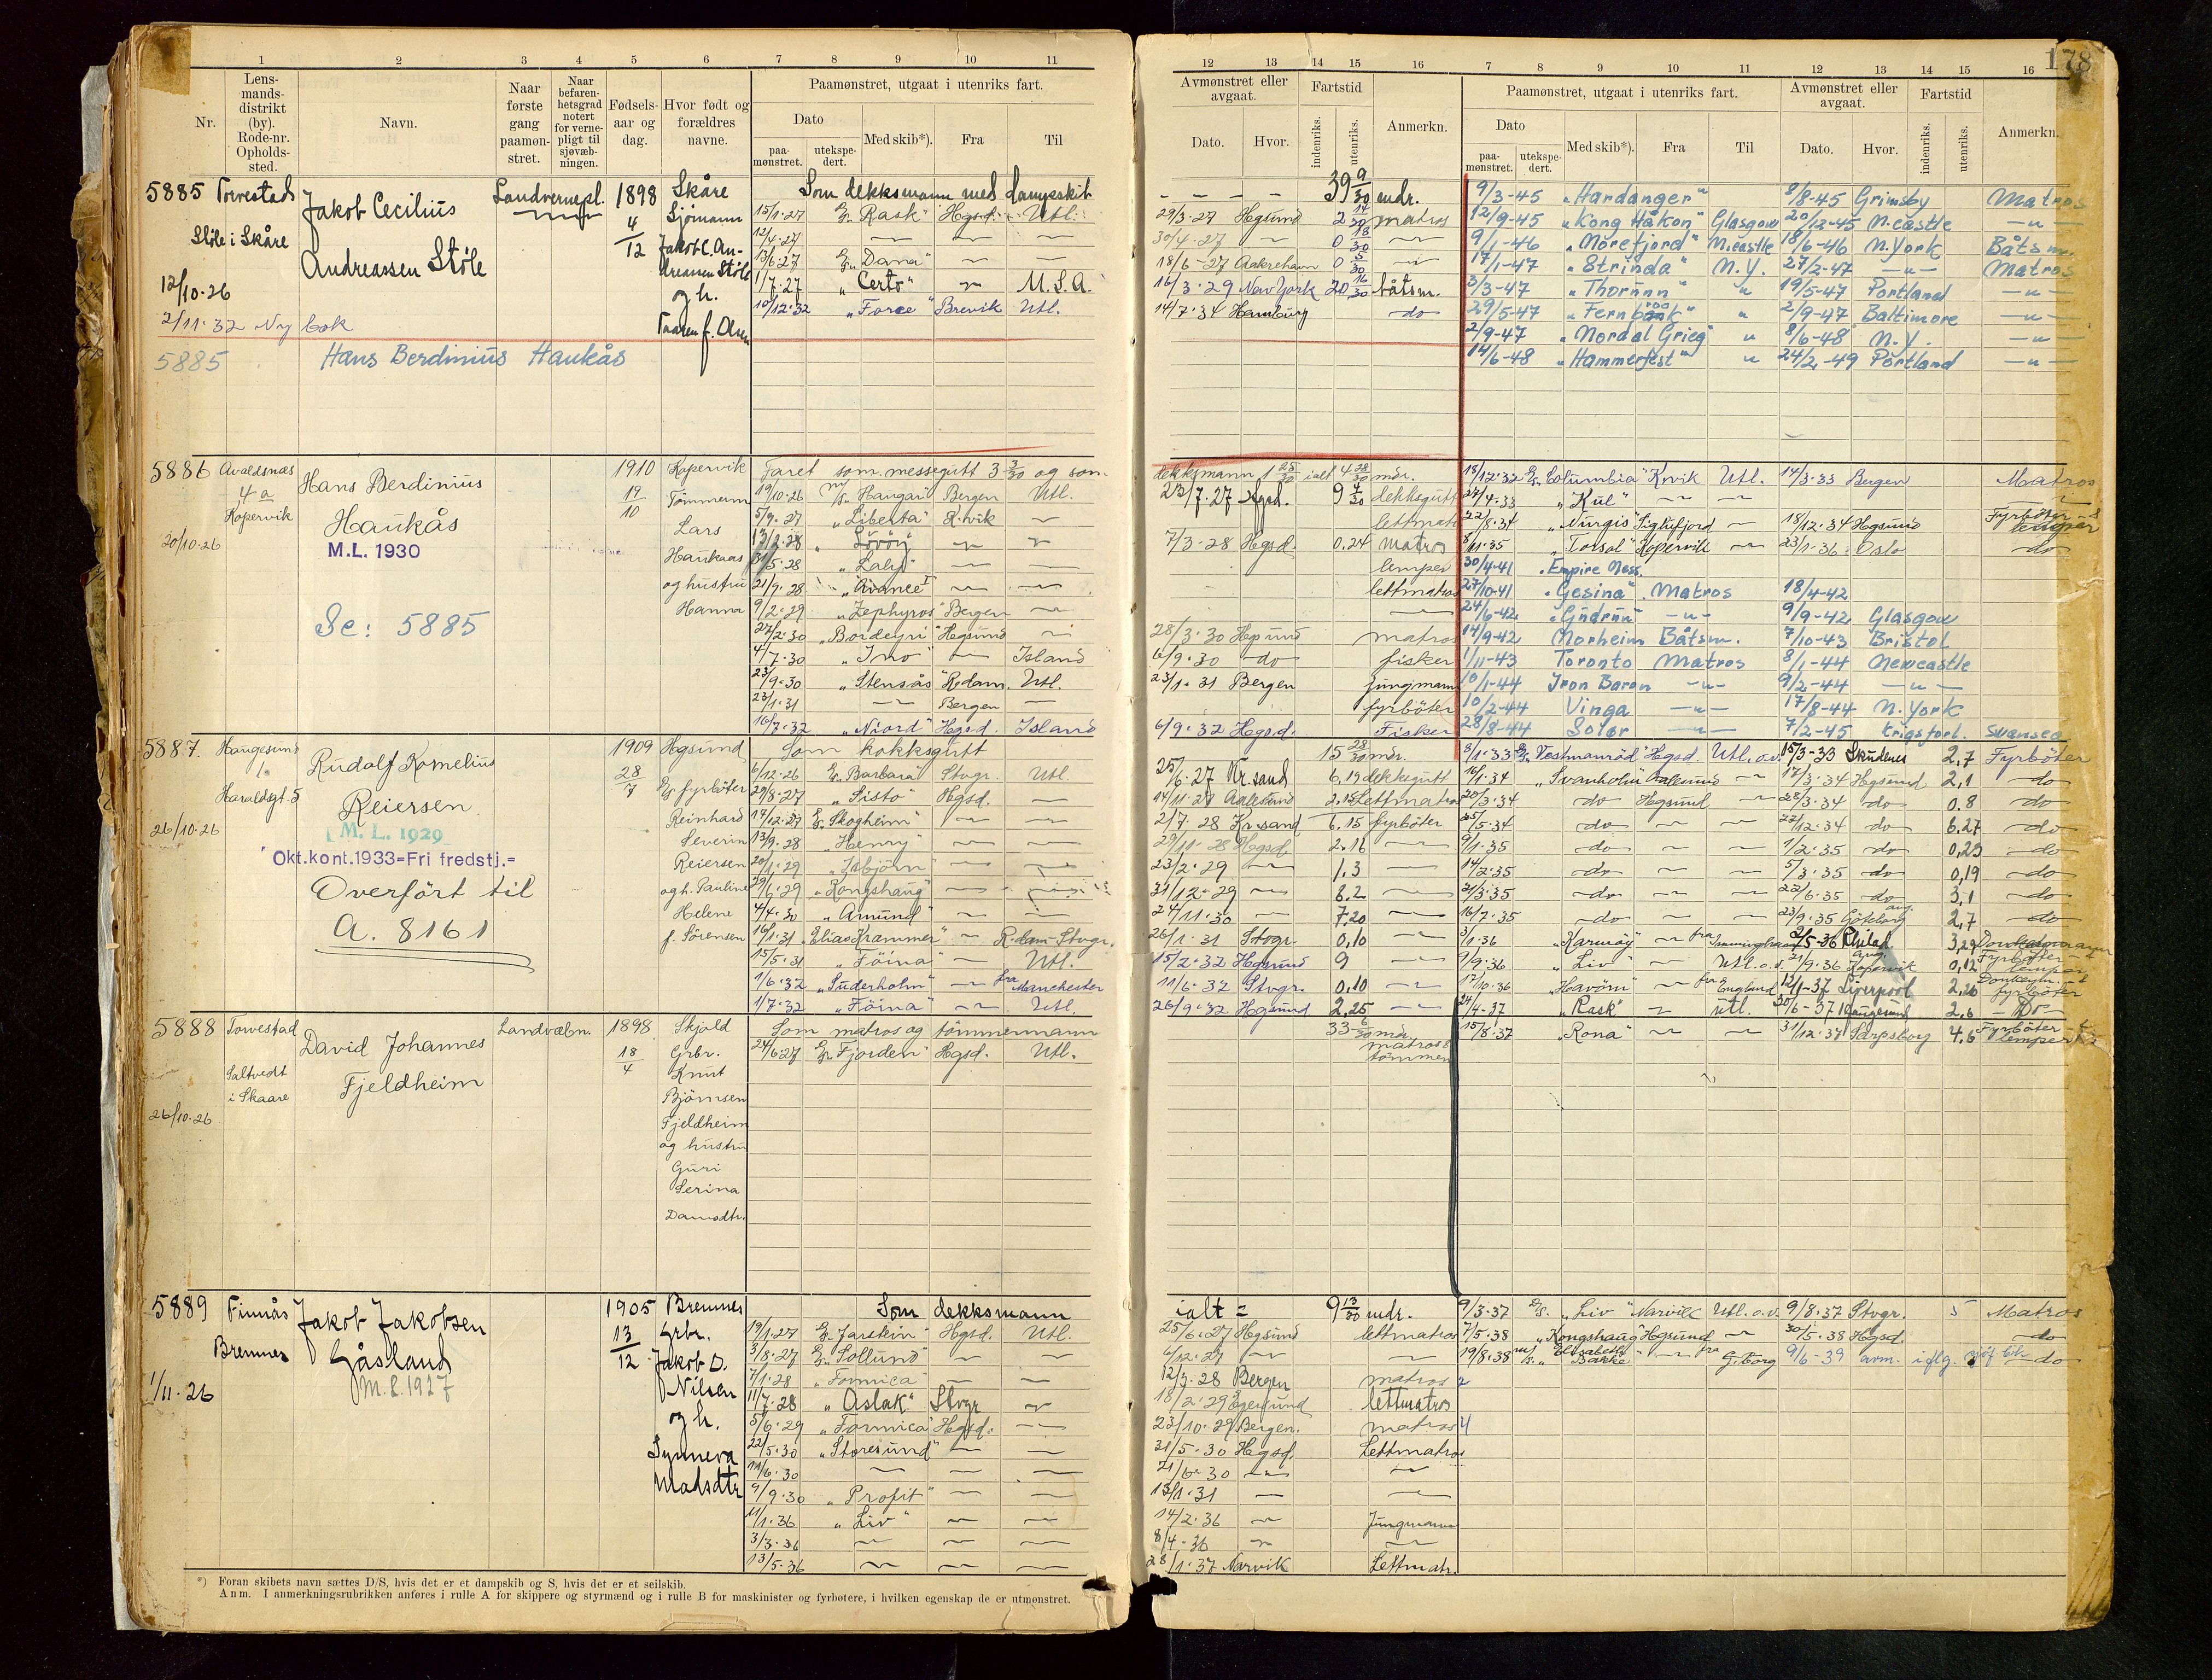 178
1 2 3 4 5 6 7 8 9 10 11
Nr.
Lensmandsdistrikt (by). Rode-nr. Opholdssted.
Navn.
Naar første gang paamønstret.
Naar befarenhetsgrad notert for vernepligt til sjøvæbningen.
Fødselsaar og dag.
Hvor født og forældres navne.
Paamønstret, utgaat i utenriks fart.
Dato
paamønstret.
utekspedert.
Med skib*).
Fra
Til
5885 Torvestad Jakob Cecilius Landvernepl. 1898 Skåre Som dekksmann med dampskib
Støle i Skåre Andreassen Støle 4/12 Sjømann
Jakob C. Andreassen Støle
og h.
12/10-26
2/11-32 Ny bok
15/1-27 "Rask" Hgsd. Utl.
12/4-27 — — —
13/6-27 "Dana" — —
1/7-27 "Certo" — U.S.A.
10/12-32 "Force" Brevik Utl.
5885 Hans Berdinius Haukås
5886 Avaldsnes Hans Berdinius 1910 Kopervik Faret som messegutt 3 3/30 og som
4 a Haukås 19/10 Tømmerm
Kopervik M.L. 1930 Lars
20/10-26 Haukaas
og hustru
Se: 5885 Hanna
19/10-26 "Haugar" Bergen Utl.
5/9-27 "Liberta" K.vik —
13/2-28 "Løvøy" — —
31/5-28 — —
21/9-28 "Avance I" — —
9/2-29 "Zephyros" Bergen —
27/2-30 "Bordeyri" Hgsund —
4/7-30 "Ino" — Island
23/9-30 "Stensås" R.dam. Utl.
23/1-31 — Bergen —
16/7-32 "Niord" Hgsd. Island
5887. Haugesund Rudolf Kornelius 1909 Hgsund Som kokksgutt
1. Reiersen 28/7 fyrbøter
Haraldsgt. 5 M.L. 1929 Reinhard
26/10-26 Okt.kont.1933=Fri fredstj.= Severin
Overført til Reiersen
A. 8161 og h. Pauline
Helene
f. Sørensen
6/12-26 "Barbara" Stvgr. Utl.
29/8-27 "Sisto" Hgsd. —
17/12-27 "Skogheim" — —
13/9-28 "Henry" — —
20/1-29 "Isbjørn" — —
29/6-29 "Kongshaug" — —
4/4-30 "Amund" — —
16/1-31 "Elias Krammer" — R.dam-Stvgr.
15/5-31 "Föina" — Utl.
1/6-32 "Suderholm" — fra Manchester
1/7-32 "Föina" — Utl.
5888 Torvestad David Johannes Landvæbn. 1898 Skjold Som matros og tömmermann
Saltvedt i Skaare Fjeldheim 18/4 Grbr.
26/10-26 Knut
Björnsen
Fjeldheim
og hustru
Guri
Serina
24/6-27 "Fjorden" Hgsd. Utl.
5889 Finnås Jakob Jakobsen 1905 Bremnes Som dekksmann
Bremnes Gåsland 13/12 Grbr.
1/11-26 M.L. 1927 Jakob O.
Nilsen
og h.
Synneva
Madsdtr
19/1-27 "Jarstein" Hgsd. Utl.
3/8-27 "Sollund" — —
7/1-28 "Formica" — —
11/7-28 "Aslak" Stvgr —
5/6-29 "Formica" Hgsd. —
22/5-30 "Storesund" — —
11/6-30 — — —
9/9-30 "Profit" — —
11/1-36 "Liv" — —
3/3-36 — — —
13/5-36 — — —
*) Foran skibets navn sættes D/S, hvis det er et dampskib og S, hvis det er et seilskib.
Anm. I anmerkningsrubrikken anføres i rulle A for skippere og styrmænd og i rulle B for maskinister og fyrbøtere, i hvilken egenskap de er utmønstret.
12 13 14 15 16 7 8 9 10 11 12 13 14 15 16
Avmønstret eller avgaat.
Dato. Hvor.
Fartstid
indenriks. utenriks.
Anmerkn.
Paamønstret, utgaat i utenriks fart.
Dato
paamønstret. utekspedert.
Med skib*). Fra Til
Avmønstret eller avgaat.
Dato. Hvor.
Fartstid
indenriks. utenriks.
Anmerkn.
— — — — 39 9/30 mdr.
29/3-27 Hgsund 2 14/30 matros
30/4-27 — 0 18/30 —
18/6-27 Aakrehavn 0 5/30 —
16/3-29 New York 20 16/30 båtsm.
14/7-34 Hamburg do
9/3-45 "Hardanger" 8/8-45 Grimsby Matros
12/9-45 "Kong Håkon" Glasgow 20/12-45 N.castle —"—
9/1-46 "Norefjord" N.castle 18/6-46 N.York Båtsm.
17/1-47 "Strinda" N.Y. 27/2-47 —"— Matros
3/3-47 "Thorunn" " 19/5-47 Portland —"—
29/5-47 " 2/9-47 Baltimore —"—
2/9-47 "Nordal Grieg" " 8/6-48 N.Y. —"—
14/6-48 "Hammerfest" " 24/2-49 Portland —"—
dekksmann 1 25/30 ialt 4 28/30 mdr.
23/7-27 Hgsd. 9 4/30 dekksgutt
lettmatr
7/3-28 Hgsd. 0.24 matros
lemper
lettmatros
—
28/3-30 Hgsund matros
6/9-30 do fisker
23/1-31 Bergen jungmann
fyrbøter
6/9-32 Hgsd. Fisker
18/12-32 "Columbia" K.vik Utl. 14/3-33 Bergen Matros
27/4-33 "Kul" — — —
22/8-34 "Nurgis" Siglufjord — 18/12-34 Hgsund Fyrbøter & lemper
8/11-35 "Torsol" Kopervik — 23/1-36 Oslo do
30/4-41 "Empire Ness"
27/10-41 "Gesina" Matros 18/4-42
24/6-42 "Gudrun" —"— 9/9-42 Glasgow
14/9-42 Norheim Båtsm. 7/10-43 Bristol
1/11-43 Toronto Matros 8/1-44 Newcastle
10/1-44 Iron Baron —"— 9/2-44 —"—
10/2-44 Vinga —"— 17/8-44 N.York
28/8-44 Solør —"— 7/2-45 krigsforl. Swansea
15 28/30 mdr.
25/6-27 Kr.sand 6,19 dekksgutt
14/11-27 Aalesund 2.15 Lettmatros
2/7-28 Kr.sand 6.15 fyrbøter
29/11-28 Hgsd. 2.16 —
23/2-29 — 1.3 —
31/12-29 — 6.2 —
24/11-30 — 7.20 —
26/1-31 Stvgr. 0,10 —
15/2-32 Hgsund 9 —
11/6-32 Stvgr. 0,10 —
26/9-32 Hgsund 2,25 —
8/1-33 "Vestmanröd" Hgsd. Utl. o.v. 15/3-33 Skudenes 2,7 Fyrbøter
16/1-34 "Svanholm" Aalesund — 17/3-34 Hgsund 2,1 do
20/3-34 do Hgsund — 28/3-34 do 0.8 do
25/5-34 do — — 22/12-34 do 6.27 do
9/1-35 do — — 1/2-35 do 0,23 do
14/2-35 do — — 5/3-35 do 0,19 do
21/3-35 do — — 22/6-35 do 3,1 do
16/7-35 do — — 23/9-35 Göteborg 2,7 do
3/1-36 "Karmöy" — fra 2/5-36 Philad. 3,29 Donkeymann
9/9-36 "Liv" — Utl. o.v. 21/9-36 Kopervik 0,12 Fyrbøter- & lemper
17/10-36 "Havörn" — fra England 12/1-37 Liverpool 2,26 Donkeym. & fyrbøter
24/4-37 "Rask" — utl. 30/6-37 Haugesund 2,6 — Do —
15/8-37 "Rona" — — 31/12-37 Sarpsborg 4,6 Fyrbøter - & lemper
33 6/30 mdr.
matros &
tömmerm
ialt = 9 13/30 mdr.
25/6-27 Hgsund lettmatros
6/12-27 — —
12/3-28 Bergen matros 2
18/2-29 Egersund lettmatros
23/10-29 Bergen. matros 4
31/5-30 Hgsd. Lettmatros
21/6-30 — —
13/1-31 — —
14/2-36 — Jungmann
8/4-36 — —
28/1-37 Narvik Lettmatr.
9/3-37 D/S. "Liv" Narvik Utl. o.v. 9/8-37 Stvgr. 5 Matros
7/5-38 "Kongshaug" Hgsund — 30/5-38 Hgsd. do
19/8-38 "Elisabeth Bakke" — fra G.borg 9/6-39 avm. iflg. do